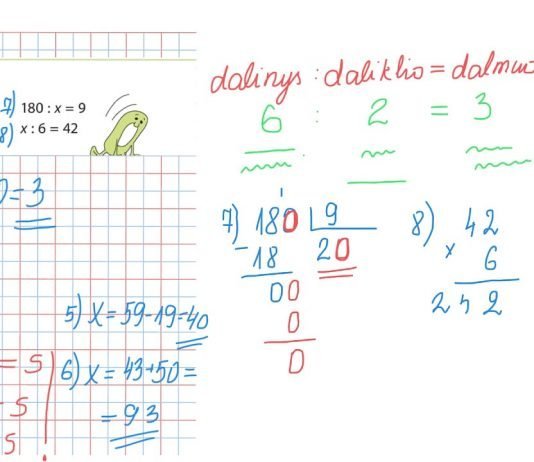 dalinys : daliklio = dalmuo
7) 180 : x = 9
8) x : 6 = 42
6 : 2 = 3
= 3
7) 180 9
- 18 20
00
0
0
8) 42
x 6
252
5) x = 59-19=40
6) x = 43+50=
= 93
= 5
5
5